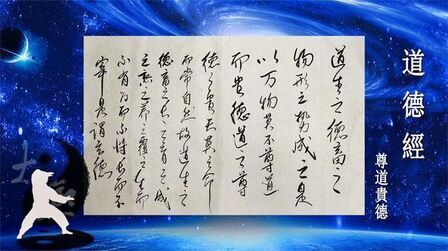 道德經
尊道貴德
道生之德畜之
物形之勢成之是
以萬物莫不尊道
而貴德道之尊
德之貴夫莫之命
而常自然故道生之
德畜之長之育之成
之熟之養之覆之生而
不有為而不恃長而不
宰是謂玄德